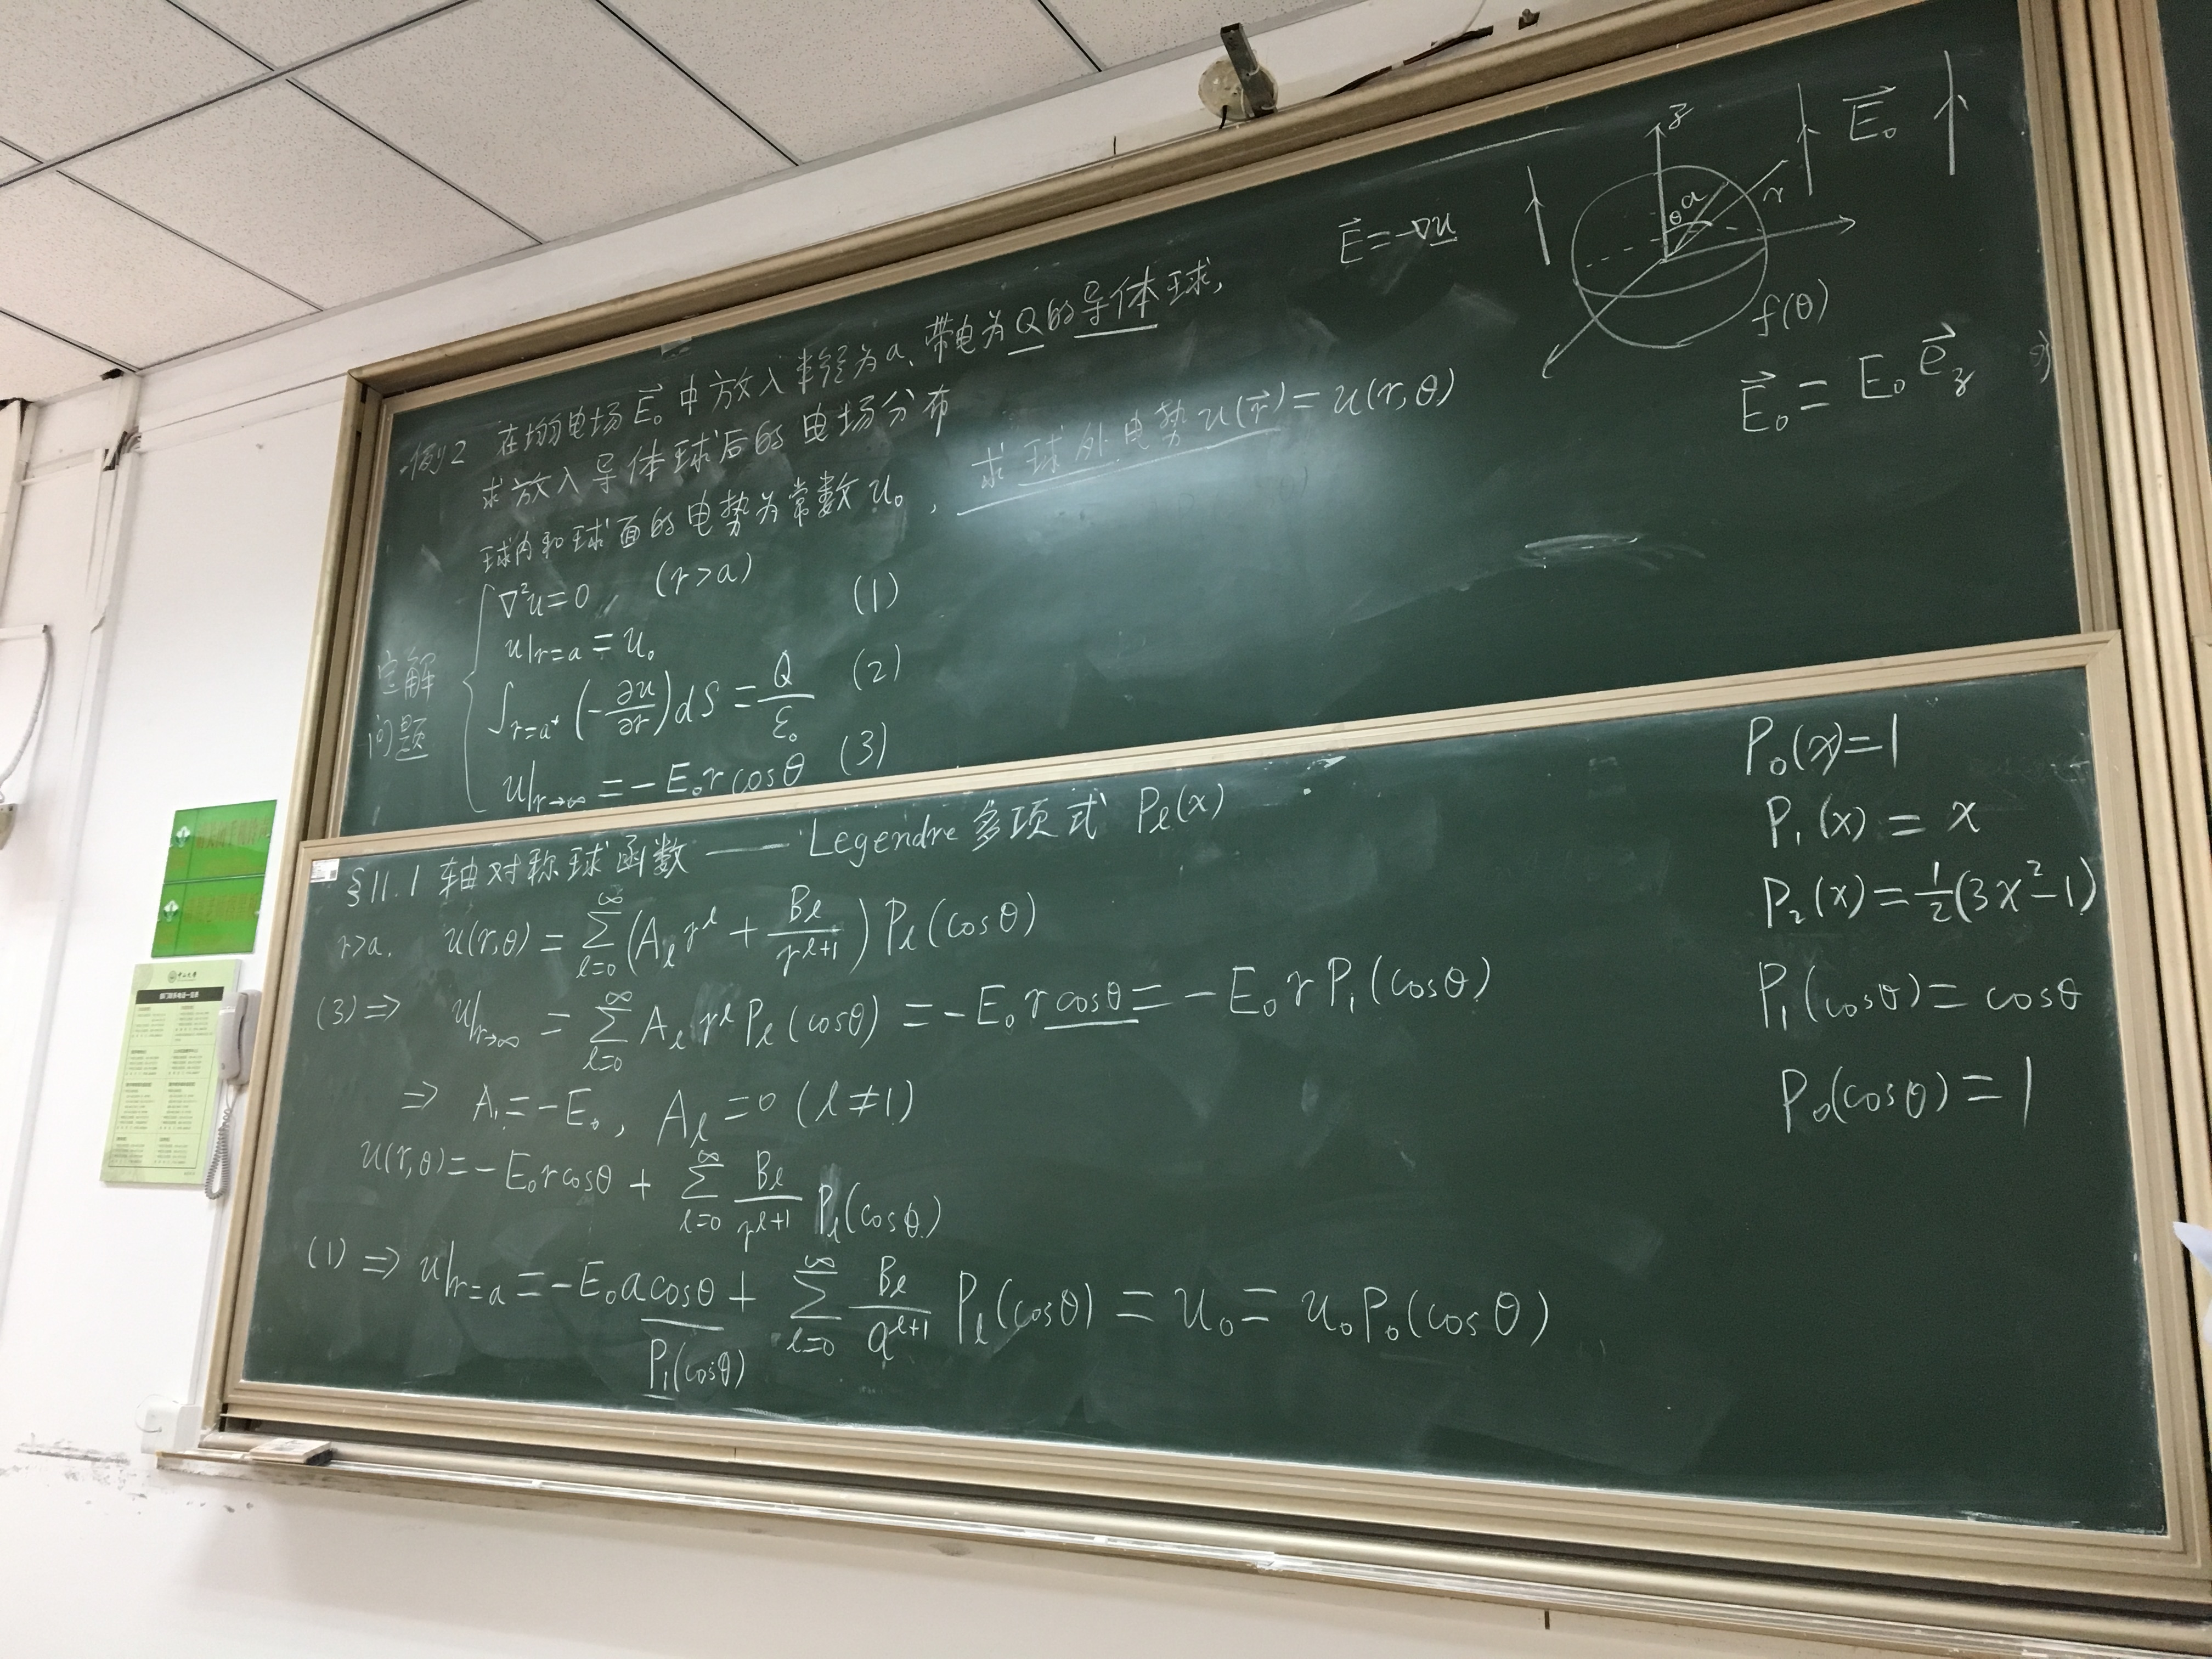 例2 在均匀电场 $\vec{E}_0$ 中放入半径为 a、带电为 Q 的导体球,
求放入导体球后的电场分布
球内和球面的电势为常数 $u_0$, 求球外电势 $u(\vec{r}) = u(r,θ)$
定解
问题
$∇^2u=0$ (r>a)
$u|_{r=a} = u_0$ (1)
$\int_{r=a^+} (-\frac{∂u}{∂r}) dS = \frac{Q}{ε_0}$ (2)
$u|_{r→∞} = -E_0 r cosθ$ (3)
$\vec{E} = -∇u$
z
θ
a
r
$\vec{E}_0$
f(θ)
$\vec{E}_0 = E_0 \vec{e}_z$
§11.1 轴对称球函数 —— Legendre 多项式 $P_l(x)$
r>a. $u(r,θ) = \sum_{l=0}^{∞} (A_l r^l + \frac{B_l}{r^{l+1}}) P_l(cosθ)$
(3) ⇒ $u|_{r→∞} = \sum_{l=0}^{∞} A_l r^l P_l(cosθ) = -E_0 r cosθ = -E_0 r P_1(cosθ)$
⇒ $A_1 = -E_0$, $A_l = 0$ (l≠1)
$u(r,θ) = -E_0 r cosθ + \sum_{l=0}^{∞} \frac{B_l}{r^{l+1}} P_l(cosθ)$
(1) ⇒ $u|_{r=a} = -E_0 a cosθ + \sum_{l=0}^{∞} \frac{B_l}{a^{l+1}} P_l(cosθ) = u_0 = u_0 P_0(cosθ)$
$P_1(cosθ)$
$P_0(x)=1$
$P_1(x) = x$
$P_2(x) = \frac{1}{2}(3x^2-1)$
$P_1(cosθ) = cosθ$
$P_0(cosθ) = 1$